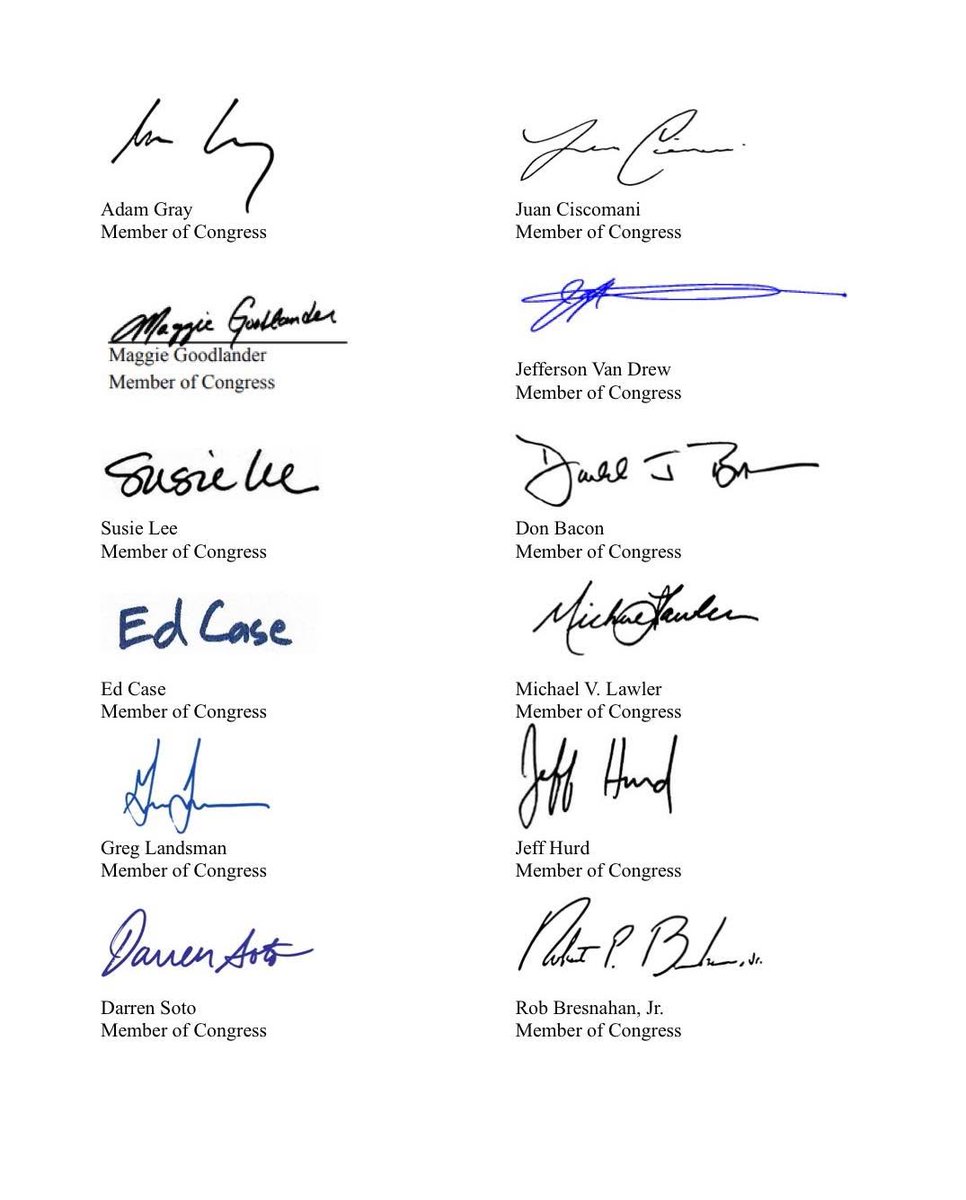 Adam Gray
Member of Congress
Juan Ciscomani
Member of Congress
Maggie Goodlander
Maggie Goodlander
Member of Congress
Jefferson Van Drew
Member of Congress
Susie Lee
Susie Lee
Member of Congress
Don Bacon
Member of Congress
Ed Case
Ed Case
Member of Congress
Michael Lawler
Michael V. Lawler
Member of Congress
Greg Landsman
Member of Congress
Jeff Hurd
Jeff Hurd
Member of Congress
Darren Soto
Darren Soto
Member of Congress
Rob Bresnahan, Jr.
Member of Congress